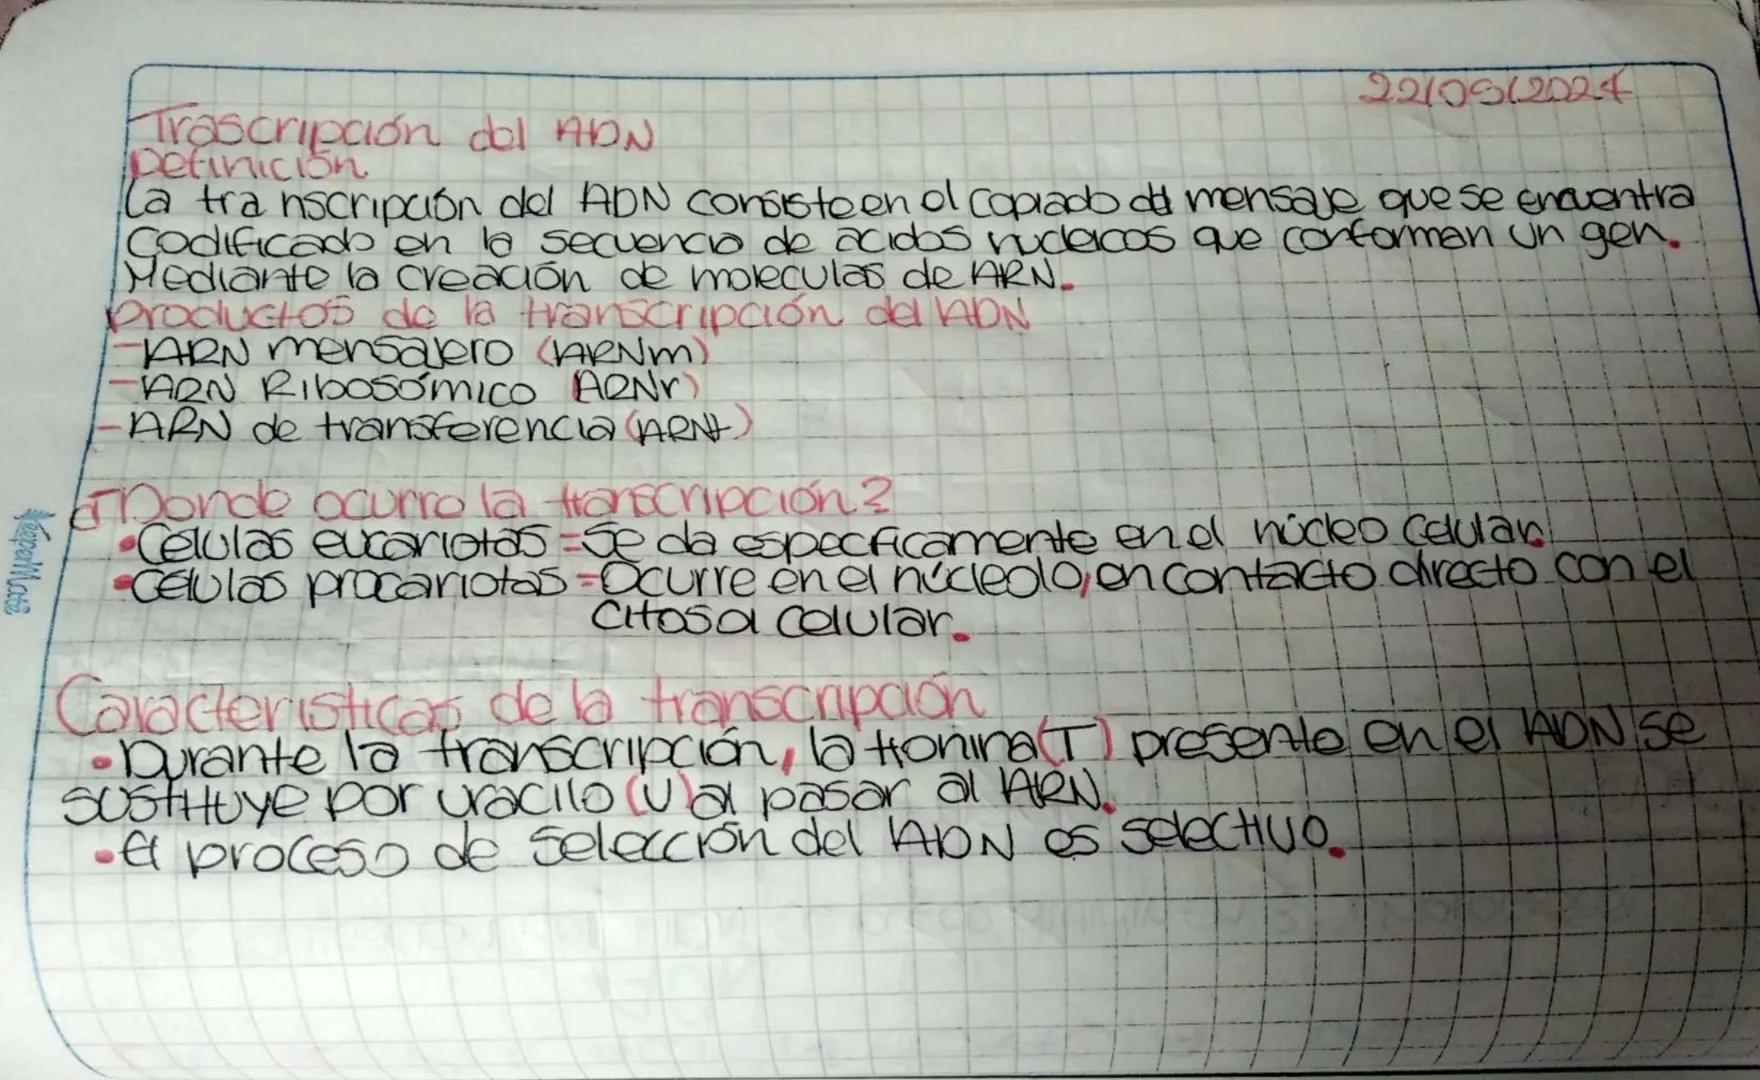 22/05/2024
Trascripción del ADN
Definición
La transcripción del ADN consiste en el copiado del mensaje que se encuentra
codificado en la secuencia de ácidos nucleicos que conforman un gen.
Mediante la creación de moleculas de ARN.
Productos de la transcripción del ADN
-ARN mensajero (ARNm)
-ARN Ribosómico ARNr)
-ARN de transferencia (ARNt)
¿Donde ocurre la transcripción?
•Células eucariotas = Se da específicamente en el núcleo celular.
•Células procariotas = Ocurre en el núcleolo, en contacto directo con el
citosol celular.
Caracteristicas de la transcripción
•Durante la transcripción, la tionina (T) presente en el ADN se
sustituye por uracilo (U) al pasar al ARN.
•El proceso de selección del ADN es selectivo.